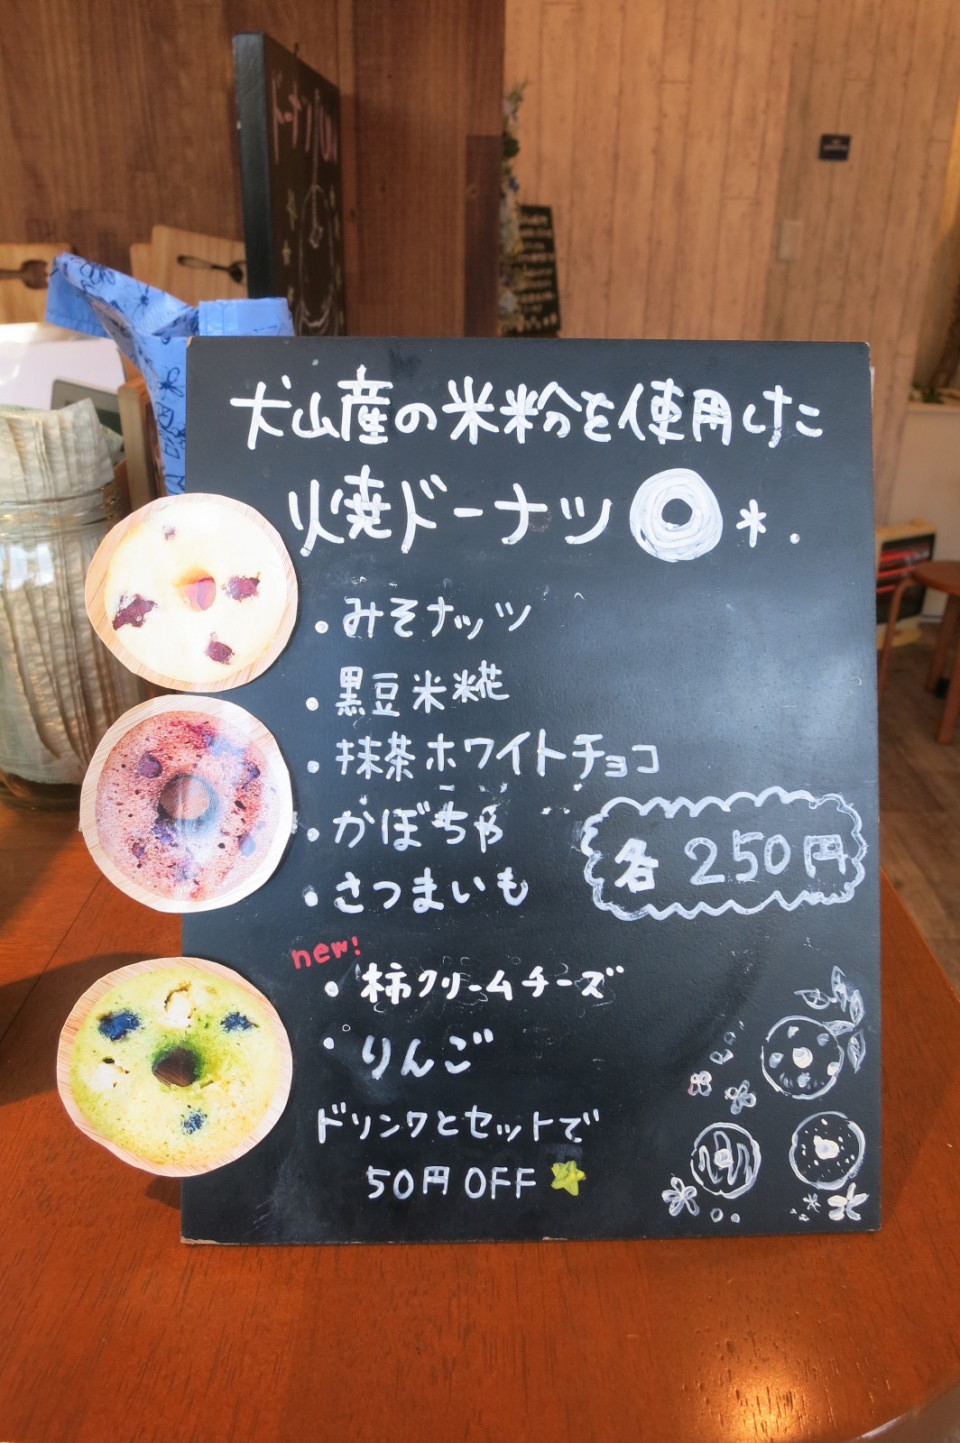 犬山産の米粉を使用した
焼ドーナツ *.
・みそナッツ
・黒豆米糀
・抹茶ホワイトチョコ
・かぼちゃ
各 250円
・さつまいも
new!
・柿クリームチーズ
・りんご
ドリンクとセットで
50円OFF